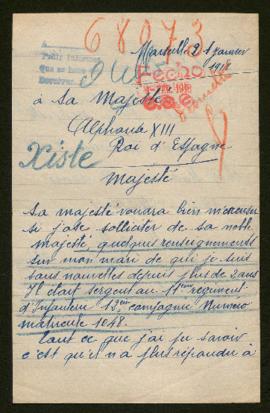 68973
Marseille 21 janvier
1918
Fecho
à Sa Majesté
Alphonse XIII
Roi d'Espagne
Xiste
Majesté
Sa majesté voudra bien m'excuser
si j'ose solliciter de sa noble
majesté, quelques renseignements
sur mon mari de qui je suis
sans nouvelles depuis plus de 2 ans
Il était sergent au 11ème régiment
d'Infanterie 12ème compagnie Numero
matricule 1048.
Tout ce que j'ai pu savoir
c'est qu'il n'a plus répondu à